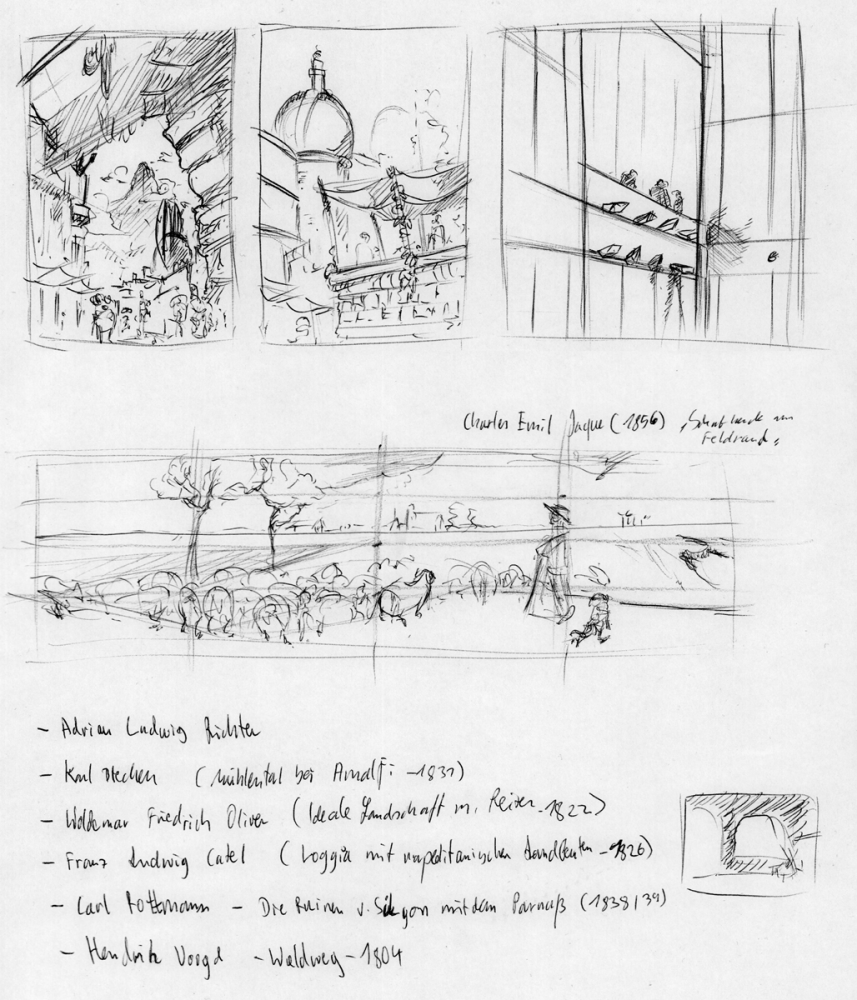 Charles Emil Jaque (1856) "Schafherde am
Feldrand"
- Adrian Ludwig Richter
- Karl Blechen (Mühlental bei Amalfi - 1831)
- Woldemar Friedrich Olivier (Ideale Landschaft m. Reiter - 1822)
- Franz Ludwig Catel (Loggia mit neapolitanischen Landleuten - 1826)
- Carl Rottmann - Die Ruinen v. Sikyon mit dem Parnaß (1838/39)
- Hendrik Voogd - Waldweg - 1804